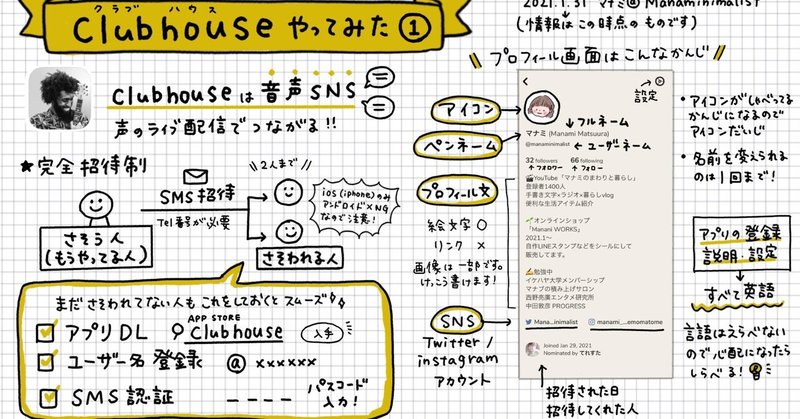 クラブ ハウス
clubhouse やってみた ①
2021.1.31 マナミ@Manaminimalist
(情報はこの時点のものです)
clubhouseは音声SNS
声のライブ配信でつながる!!
★完全招待制
さそう人
(もうやってる人)
SMS招待
Tel番号が必要
2人まで
さそわれる人
ios(iphone)のみ
アンドロイド×NG
なので注意!
まださそわれてない人もこれをしておくとスムーズ
アプリDL
APP STORE
clubhouse
入手
ユーザー名登録
@ ××××××
SMS認証
パスコード
入力!
プロフィール画面はこんなかんじ
アイコン
ペンネーム
プロフィール文
絵文字 ○
リンク ×
画像は一部です。
けっこう書けます!
SNS
Twitter/
instagram
アカウント
設定
フルネーム
マナミ (Manami Matsuura)
@manaminimalist
ユーザネーム
32 followers 66 following
フォロワー フォロー
YouTube「マナミのまわりと暮らし」
登録者1400人
手書き文字×ラジオ×暮らしvlog
便利な生活アイテム紹介
オンラインショップ
「Manani WORKS」
2021.1〜
自作LINEスタンプなどをシールにして
販売してます。
勉強中
イケハヤ大学メンバーシップ
マナブの積み上げサロン
西野亮廣エンタメ研究所
中田敦彦 PROGRESS
Mana...inimalist manami_...emomatome
Joined Jan 29, 2021
Nominated by てれすた
招待された日
招待してくれた人
・アイコンがしゃべってる
かんじになるので
アイコンだいじ
・名前を変えられる
のは1回まで!
アプリの登録
説明・設定
すべて英語
言語はえらべない
ので心配になったら
しらべる!